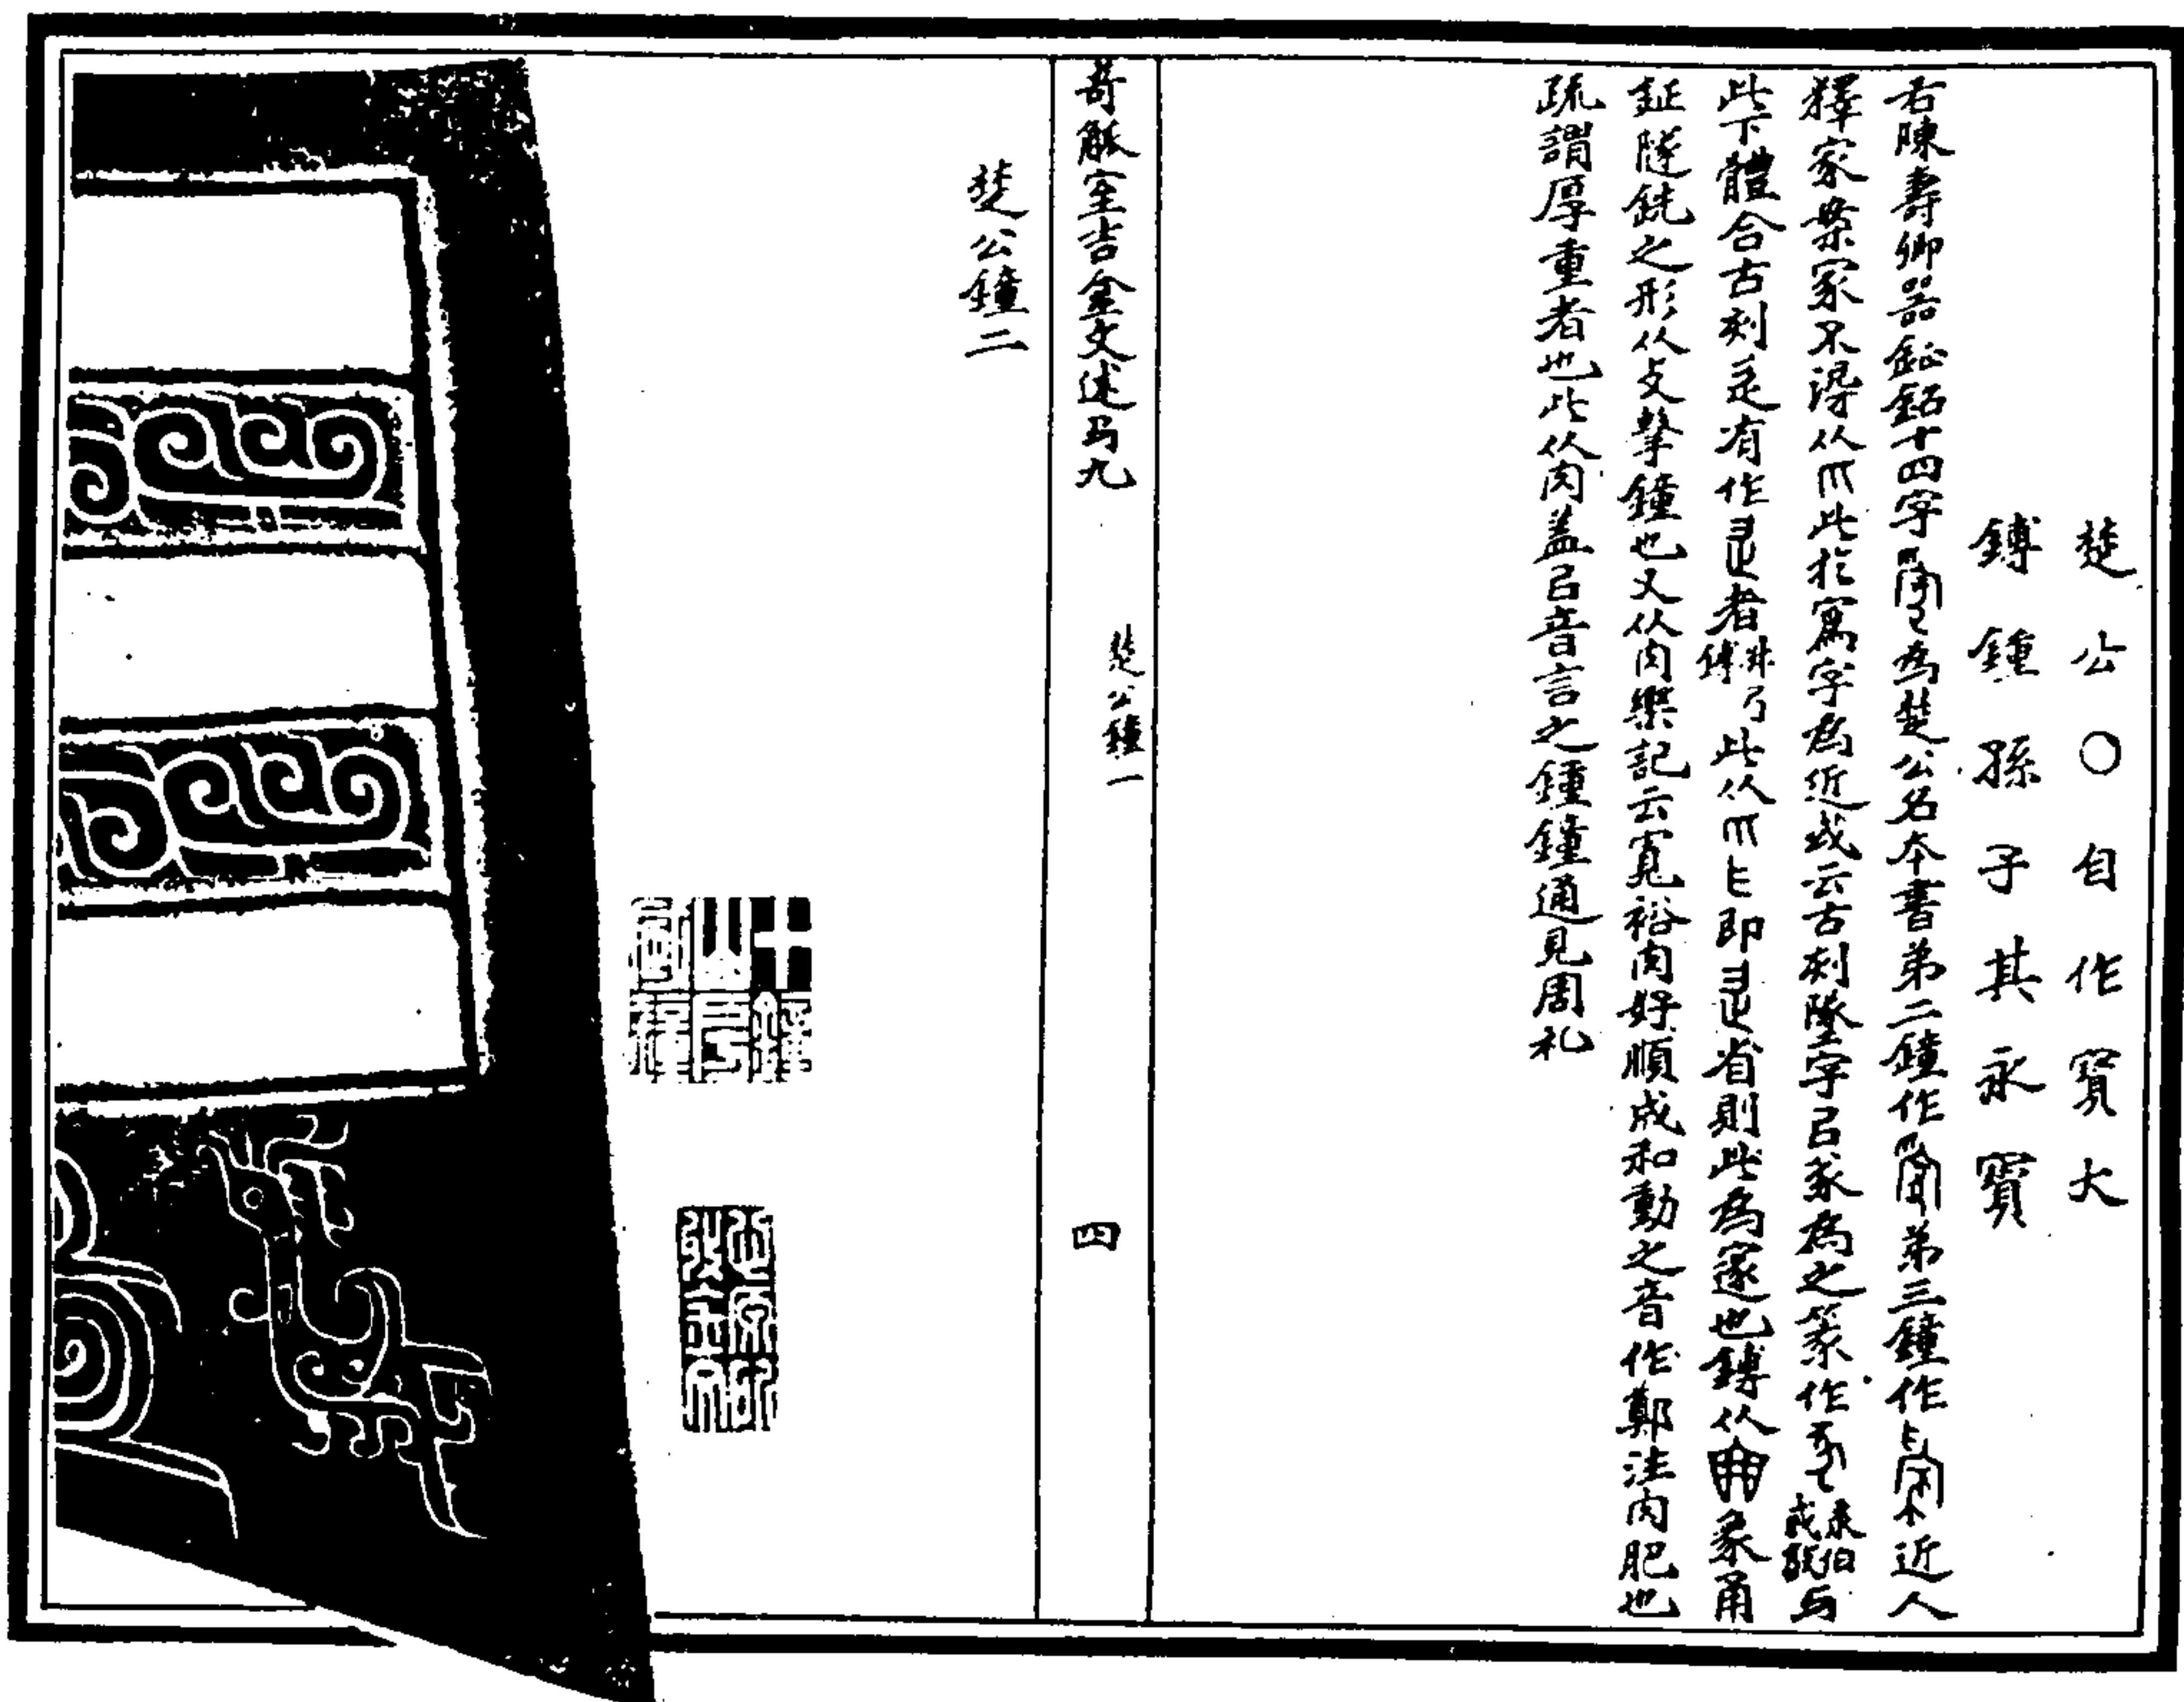 楚公○自作寶大
鎛鍾孫子其永寶
右陳壽卿器鉦銘十四字爲楚公名本書弟二鐘作弟三鐘作近人
釋家案家不得从爪此於寫字爲近或云古刻墜字㠯豖爲之篆作彔伯戎𣪘与
此下體合古刻是有作者此从爪即省則此爲寁也鎛从象甬
鉦隧銑之形从攴擊鐘也又从肉樂記云寬裕肉好順成和動之音作鄭注肉肥也
疏謂厚重者也此从肉蓋㠯音言之鍾鐘通見周礼
奇觚室吉金文述弓九
楚公鐘一
四
楚公鐘二
十鐘山房